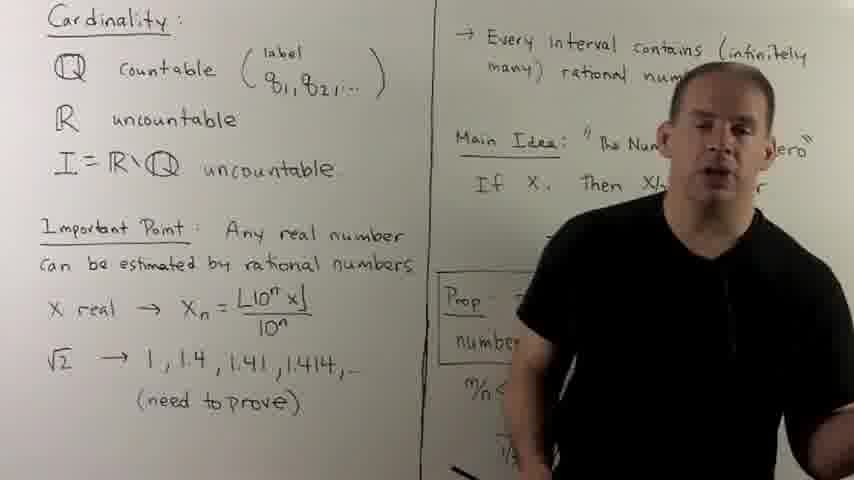 Cardinality:
ℚ countable ( label q₁, q₂, ... )
ℝ uncountable
I = ℝ \ ℚ uncountable
Important Point: Any real number
can be estimated by rational numbers
X real → Xₙ = ⌊10ⁿ x⌋ / 10ⁿ
√2 → 1, 1.4, 1.41, 1.414, ...
(need to prove)
→ Every interval contains (infinitely
many) rational
Main Idea: "The
If X, Then
Prop
m/n <